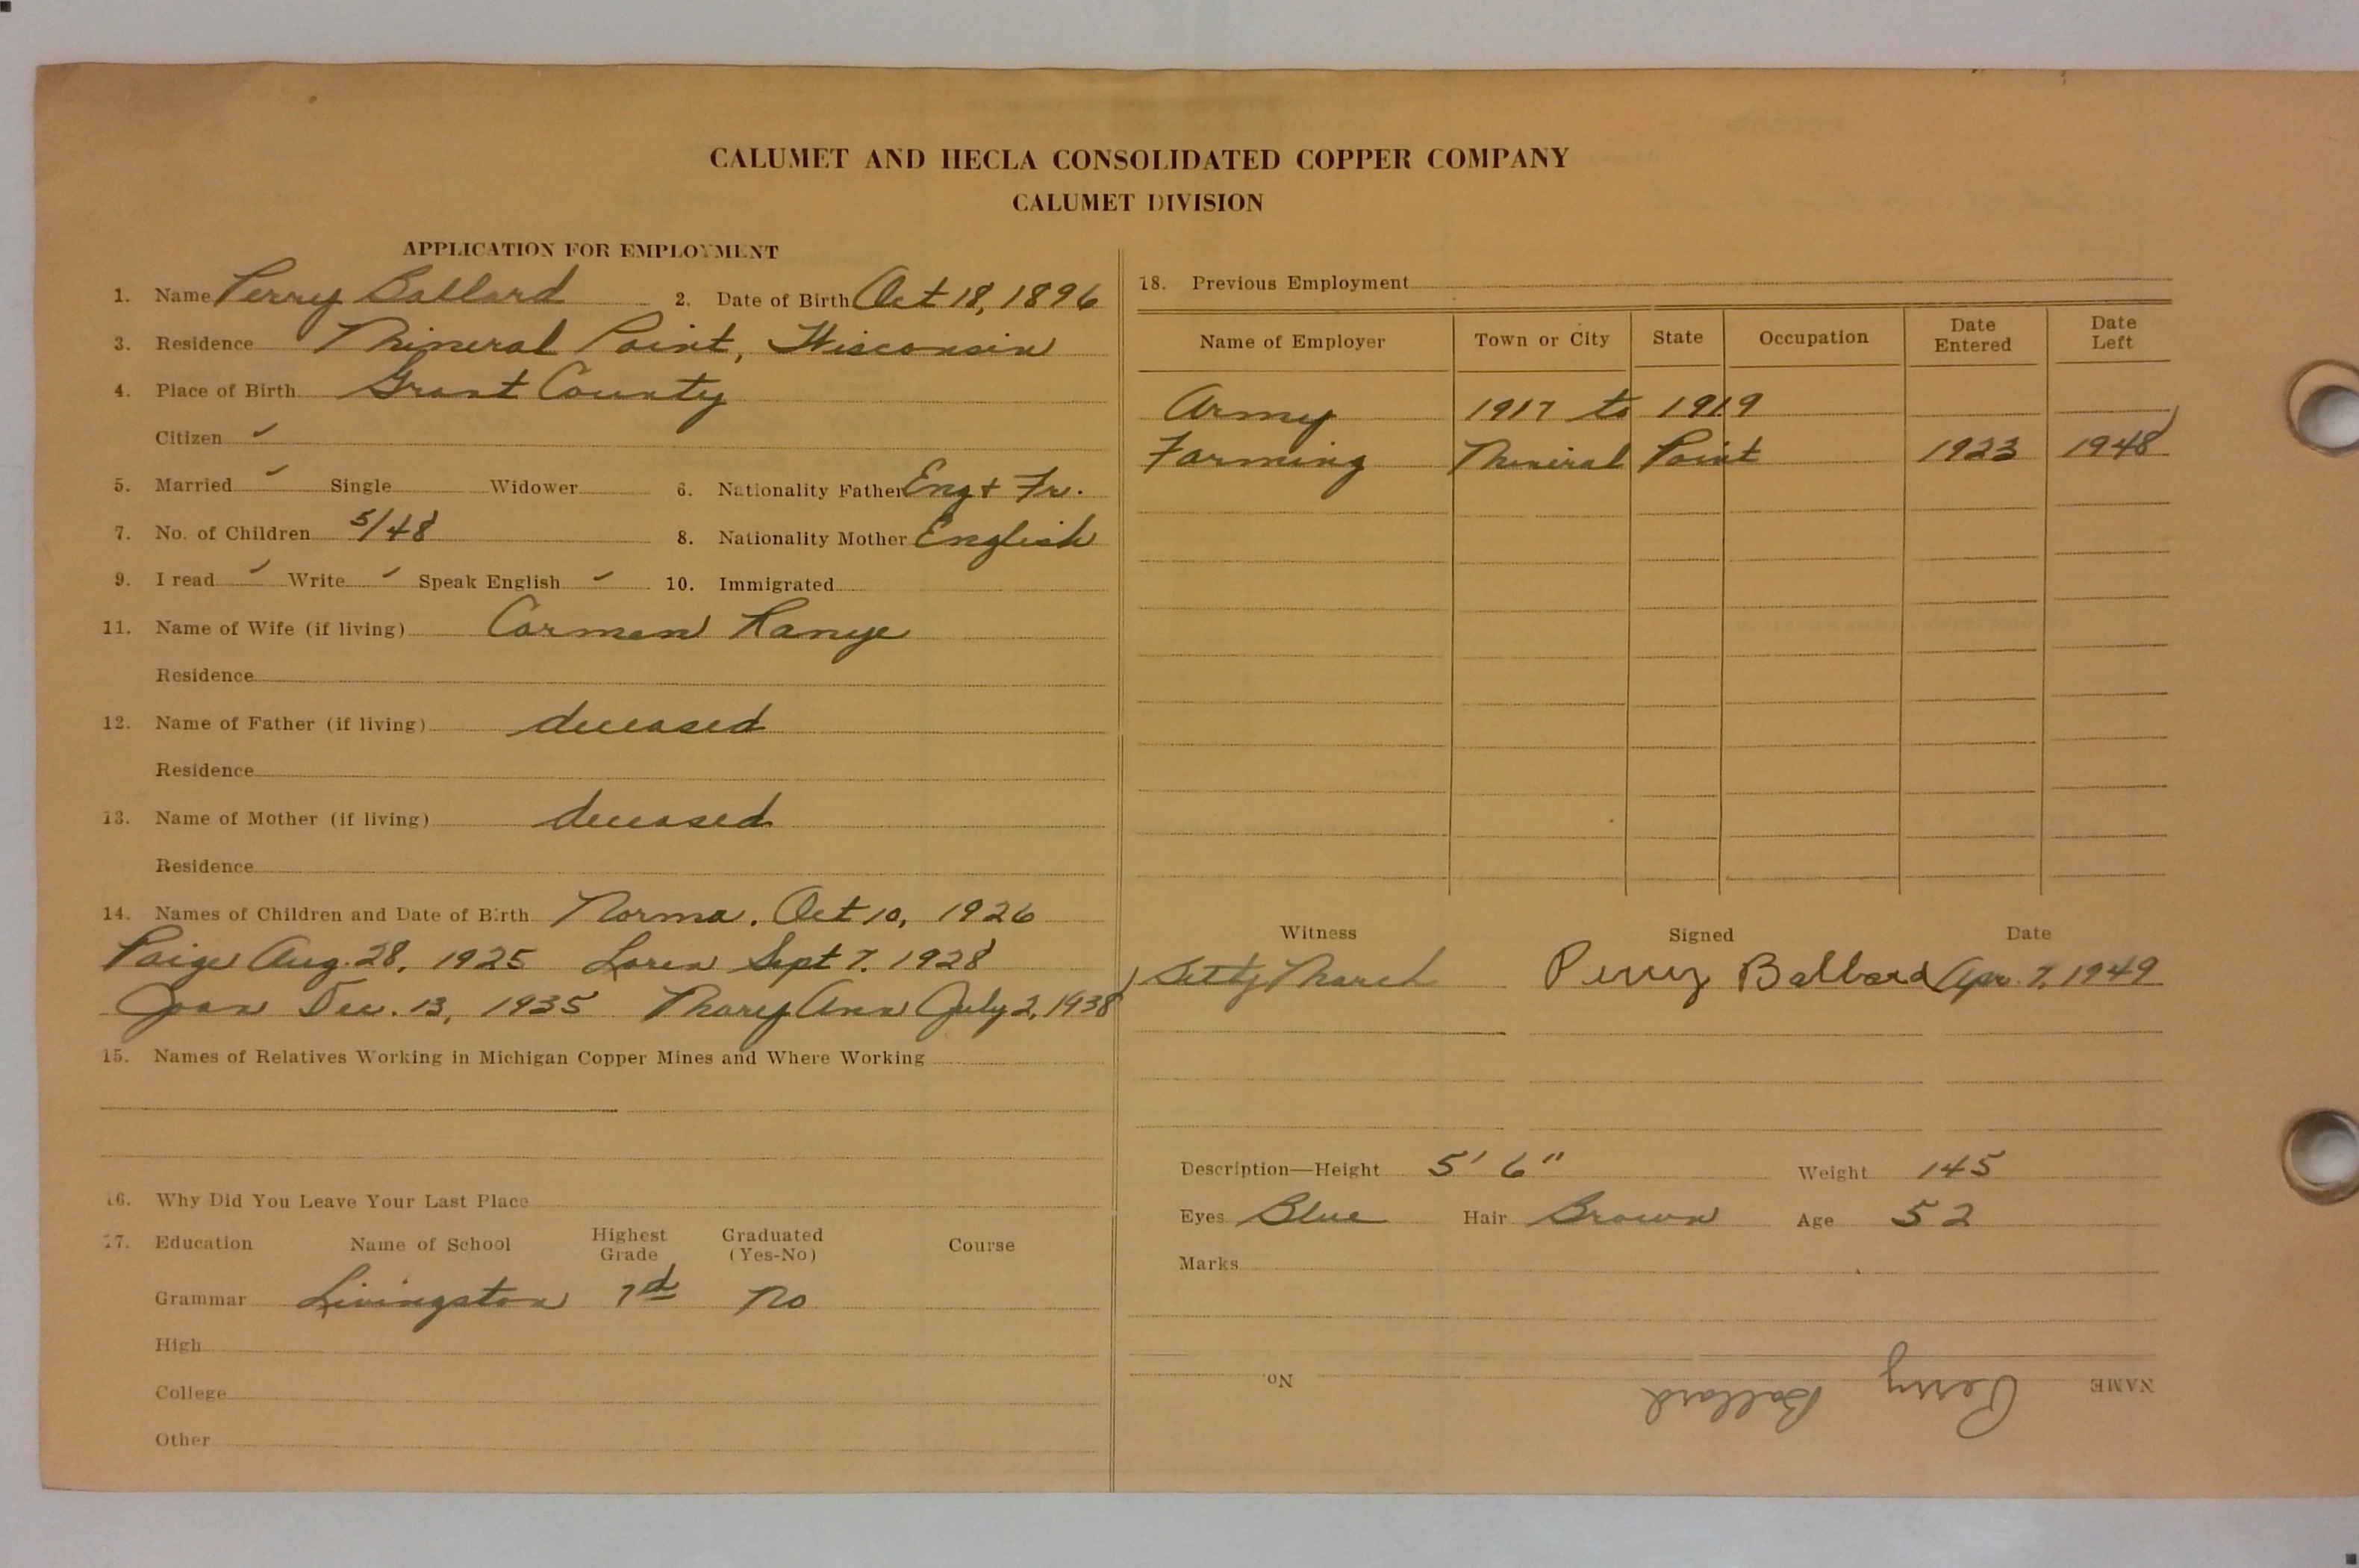 CALUMET AND HECLA CONSOLIDATED COPPER COMPANY
CALUMET DIVISION
APPLICATION FOR EMPLOYMENT
1. Name Perry Ballard 2. Date of Birth Oct 18, 1896
3. Residence Mineral Point, Wisconsin
4. Place of Birth Grant County
Citizen ✓
5. Married ✓ Single Widower 6. Nationality Father Eng + Fr.
7. No. of Children 5/48 8. Nationality Mother English
9. I read ✓ Write ✓ Speak English ✓ 10. Immigrated
11. Name of Wife (if living) Carmen
Residence
12. Name of Father (if living) deceased
Residence
13. Name of Mother (if living) deceased
Residence
14. Names of Children and Date of Birth Norma. Oct 10, 1926
Paige Aug. 28, 1925 Loren Sept 7, 1928
Joan Dec. 13, 1935 Mary Ann July 2, 1938
15. Names of Relatives Working in Michigan Copper Mines and Where Working
16. Why Did You Leave Your Last Place
17. Education Name of School Highest Grade Graduated (Yes-No) Course
Grammar Livingston 7d No
High
College
Other
18. Previous Employment
Name of Employer Town or City State Occupation Date Entered Date Left
Army 1917 to 1919
Farming Mineral Point 1923 1948
Witness Signed Date
March Perry Ballard Apr. 7, 1949
Description—Height 5' 6" Weight 145
Eyes Blue Hair Brown Age 52
Marks
NAME Perry Ballard No.